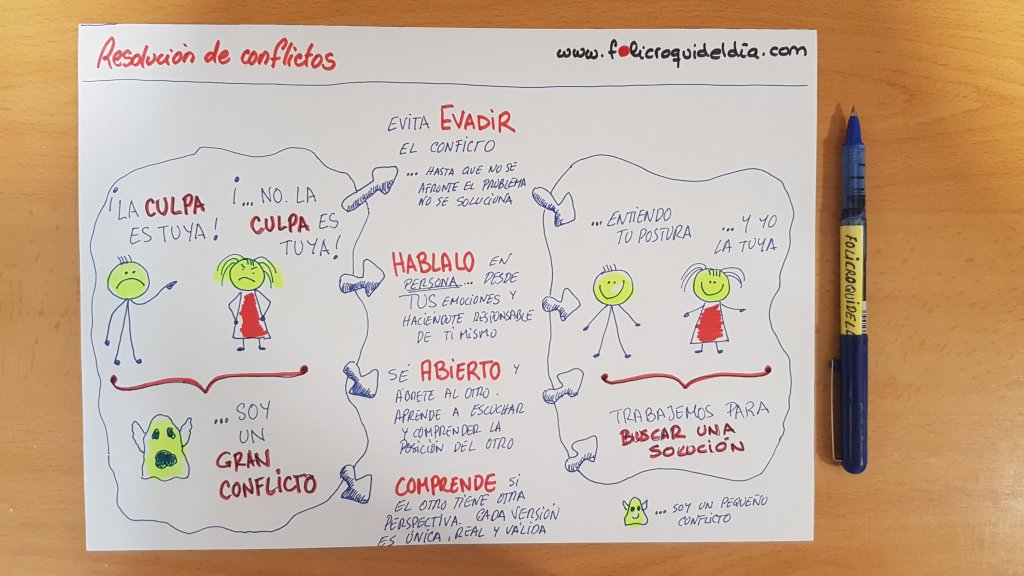 Resolución de conflictos
www.folicroquideldía.com
¡LA CULPA
ES TUYA!
¡... NO. LA
CULPA ES
TUYA!
... SOY
UN
GRAN
CONFLICTO
EVITA EVADIR
EL CONFLICTO
... HASTA QUE NO SE
AFRONTE EL PROBLEMA
NO SE SOLUCIONA
HABLALO EN
PERSONA... DESDE
TUS EMOCIONES Y
HACIENDOTE RESPONSABLE
DE TI MISMO
SÉ ABIERTO Y
ÁBRETE AL OTRO.
APRENDE A ESCUCHAR
Y COMPRENDER LA
POSICIÓN DEL OTRO
COMPRENDE SI
EL OTRO TIENE OTRA
PERSPECTIVA. CADA VERSIÓN
ES ÚNICA, REAL Y VÁLIDA
... ENTIENDO
TU POSTURA
... Y YO
LA TUYA
TRABAJEMOS PARA
BUSCAR UNA
SOLUCIÓN
... SOY UN PEQUEÑO
CONFLICTO
FOLICROQUIDELD